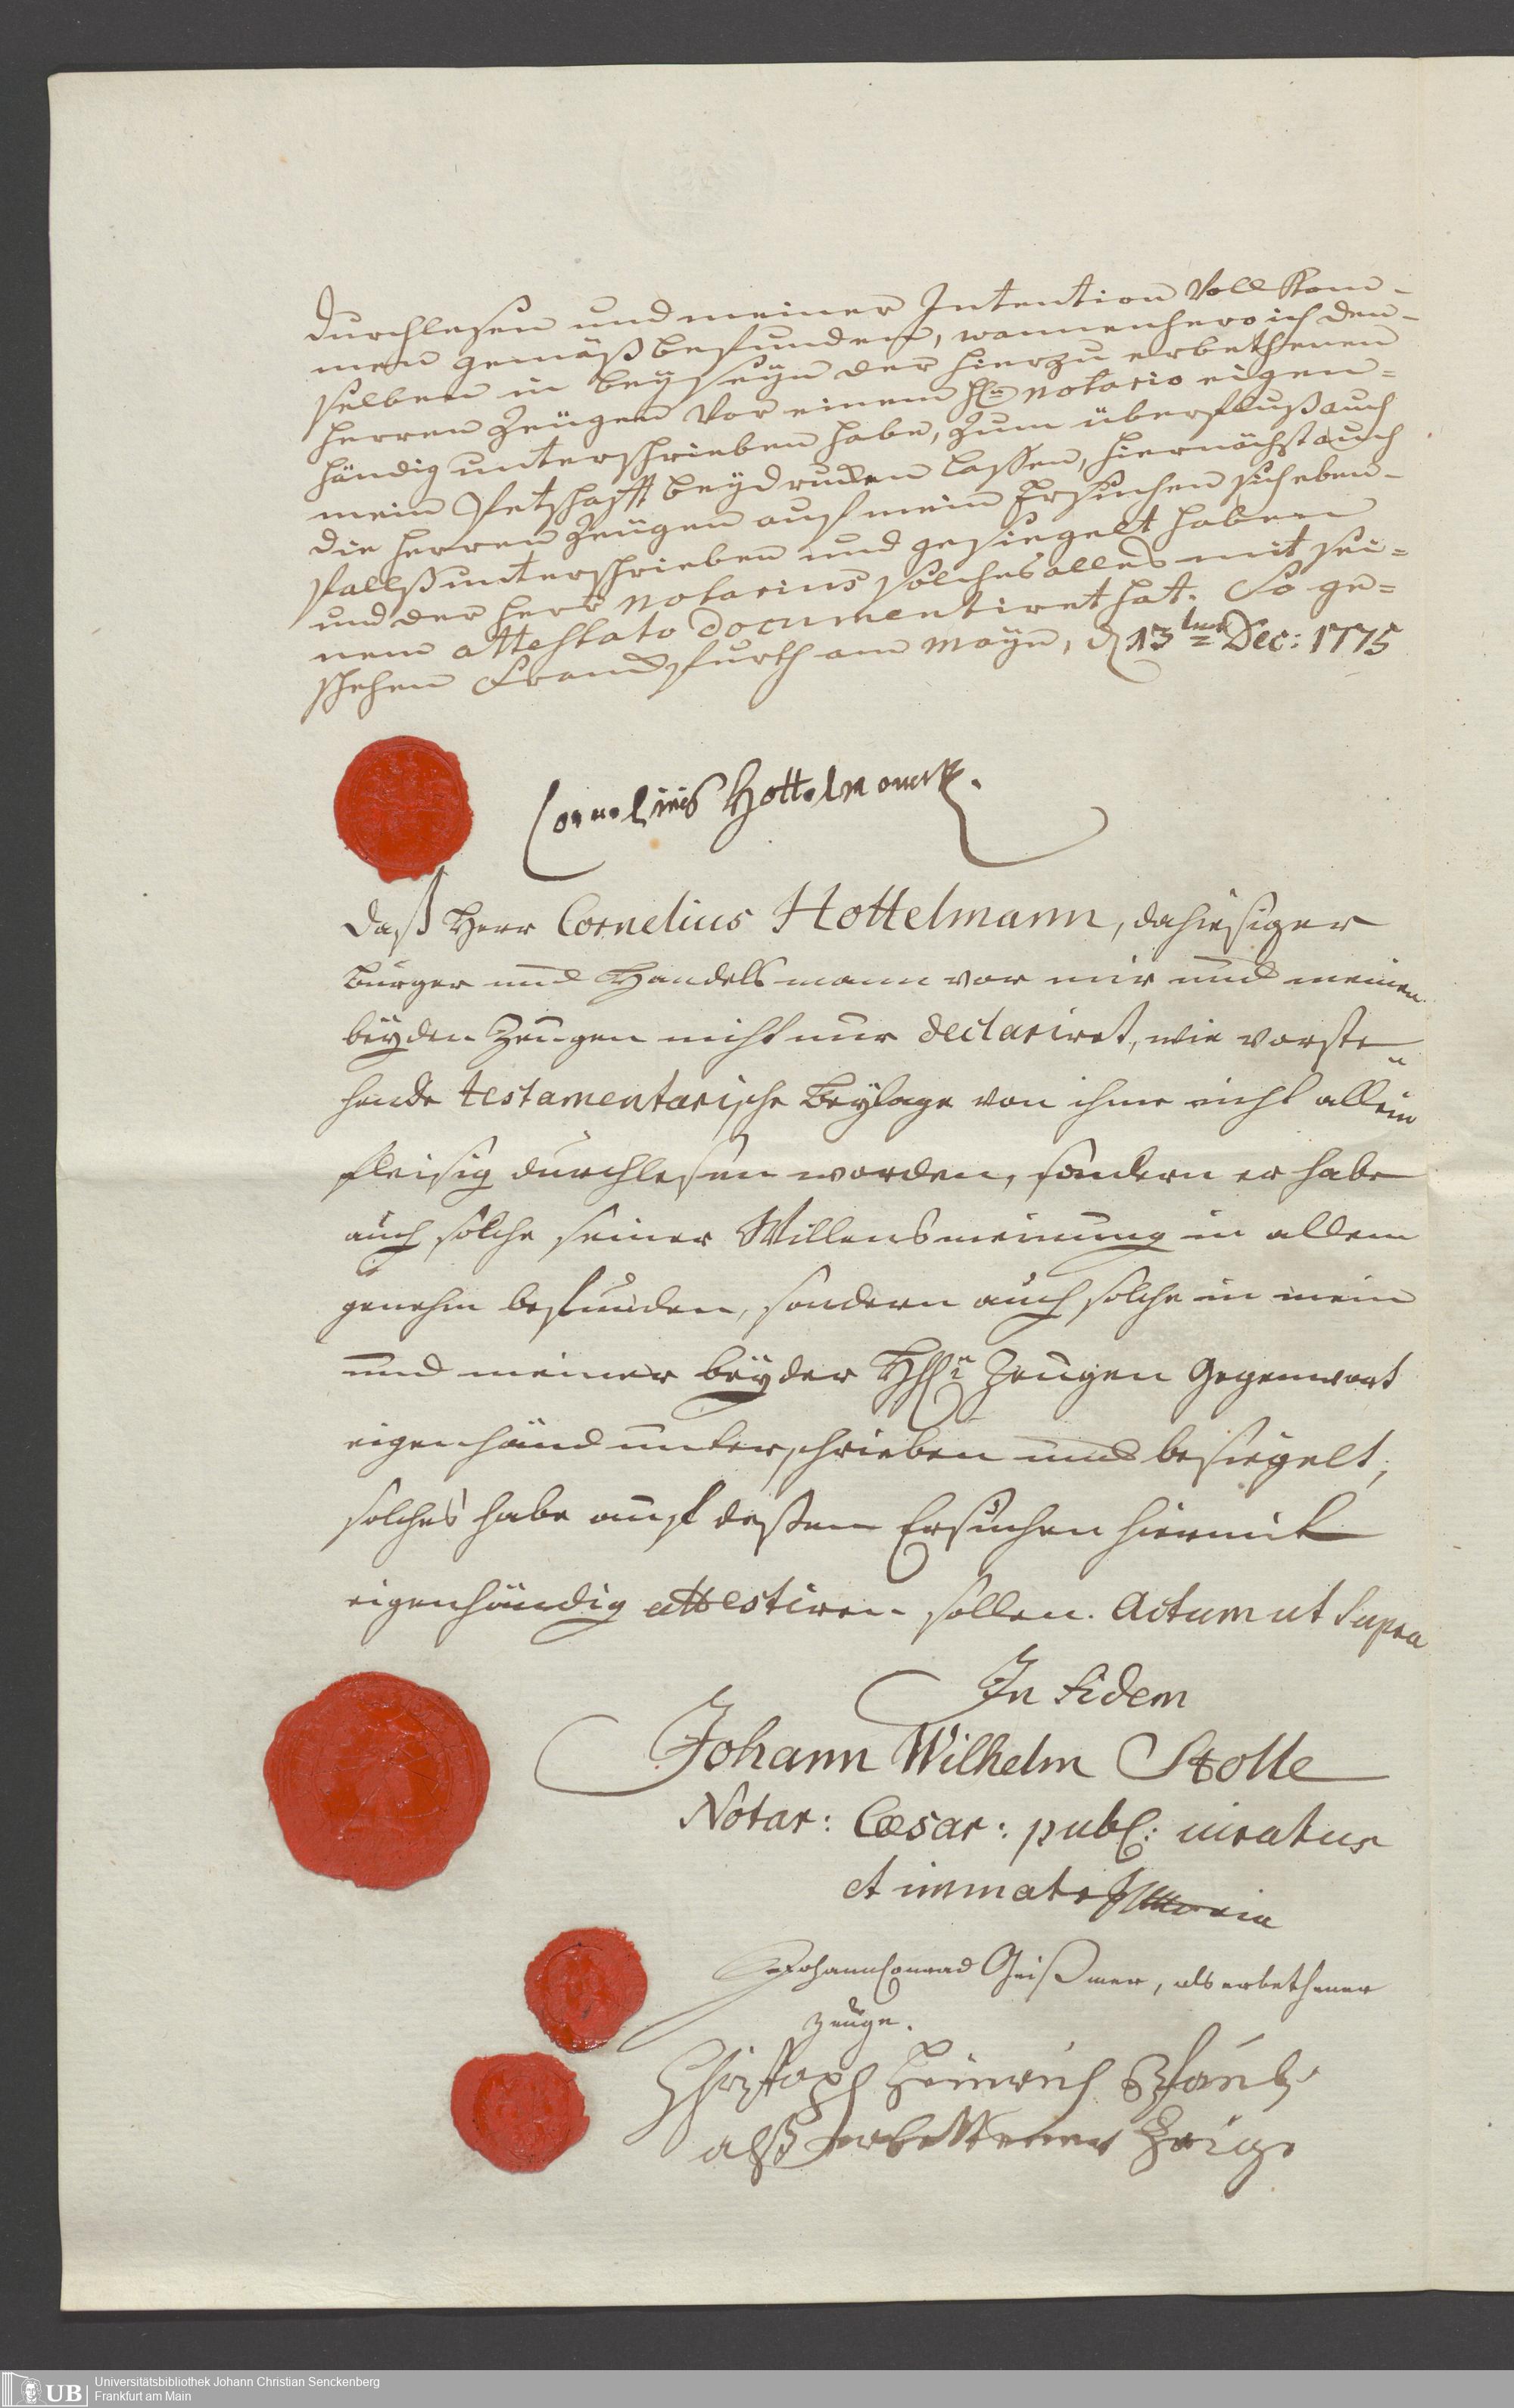 durchlesen und meiner Intention Vollkom-
men gemäß befunden, wannenhero ich den-
selben in beyseyn der hierzu erbethenen
Herren Zeügen Vor einem H.n Notario eigen=
händig unterschrieben habe, zum überfluß auch
mein Petschafft beydrucken laßen, hiernächst auch
die Herren Zeügen auf mein Ersuchen sich eben-
falls unterschrieben und gesiegelt haben
und der Herr Notarius solches alles mit sei=
nem attestato documentiret hat. So ge=
schehen Franckfurth am Mayn, d 13ten Dec: 1775
Cornelius Hottelmann.
Daß Herr Cornelius Hottelmann, dahiesiger
Burger und Handelsmann vor mir und meinen
beyden Zeugen nicht nur declariret, wie vorste=
hende testamentarische Beylage von ihme nicht allein
fleisig durchlesen worden, sondern er habe
auch solche seiner Willensmeinung in allem
genehm befunden, sondern auch solche in mein
und meiner beyder HHn Zeugen Gegenwart
eigenhänd unterschrieben und besiegelt,
solches habe auf deßen Ersuchen hiermit
eigenhändig attestiren sollen. Actum ut Supra
In fidem
Johann Wilhelm Stolle
Notar: Cæsar: publ: iuratus
et immatr
Johann Conrad Geißmer, als erbethener
Zeuge.
Christoph Heinrich
alß erbettener Zeige
UB
Universitätsbibliothek Johann Christian Senckenberg
Frankfurt am Main